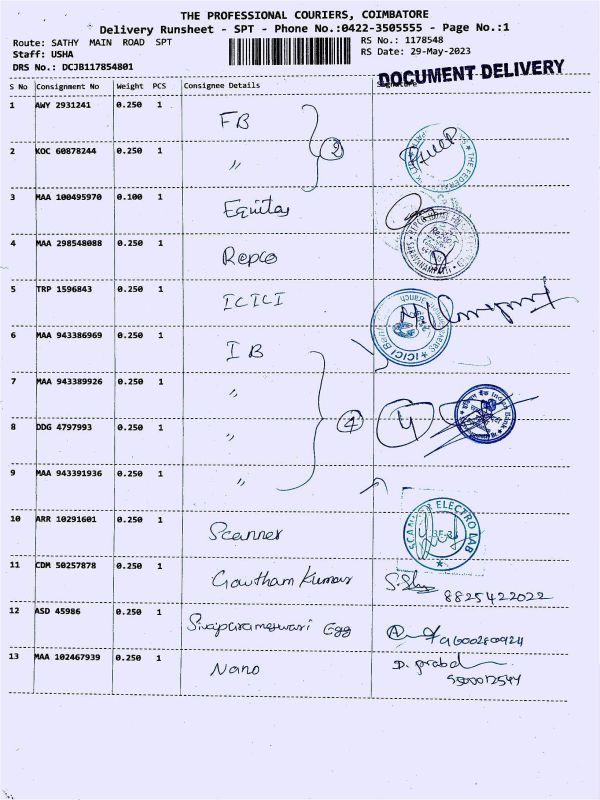 THE PROFESSIONAL COURIERS, COIMBATORE
Delivery Runsheet - SPT - Phone No.:0422-3505555 - Page No.:1
Route: SATHY MAIN ROAD SPT RS No.: 1178548
Staff: USHA RS Date: 29-May-2023
DRS No.: DCJB117854801
DOCUMENT DELIVERY
S No Consignment No Weight PCS Consignee Details Signature
1 AWY 2931241 0.250 1 FB
2 KOC 60878244 0.250 1 〃
THE FEDERAL
3 MAA 100495970 0.100 1 Equitas
4 MAA 298548088 0.250 1 Repco
REPCO SARAVANAMPATTI
5 TRP 1596843 0.250 1 ICICI
ICICI Bank Branch
6 MAA 943386969 0.250 1 IB
7 MAA 943389926 0.250 1 〃
8 DDG 4797993 0.250 1 〃 4 4
Indian Bank
9 MAA 943391936 0.250 1 〃
10 ARR 10291601 0.250 1 Scanner
ELECTRO LAB
11 CDM 50257878 0.250 1 Gowtham Kumar
8825422022
12 ASD 45986 0.250 1 Sivaparameswari Egg
9600280924
13 MAA 102467939 0.250 1 Nano D. Praba